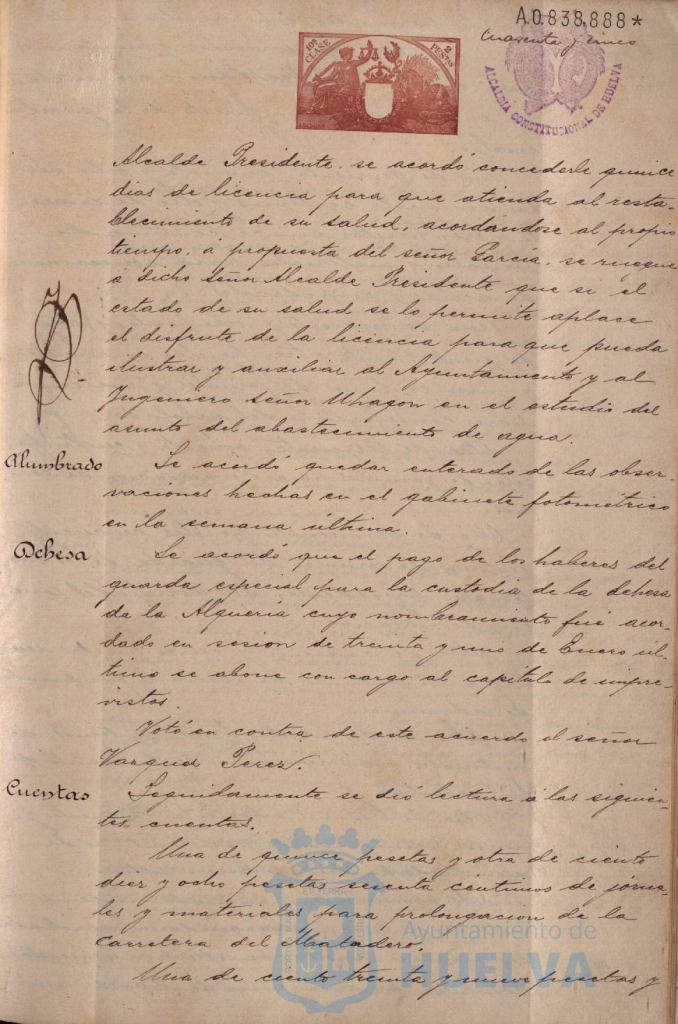 A.0.838.888*
Cuarenta y cinco
10ª CLASE
2 PESETAS
ALCALDIA CONSTITUCIONAL DE HUELVA
Alcalde Presidente se acordó concederle quince
dias de licencia para que atienda al resta-
blecimiento de su salud, acordandose al propio
tiempo, á propuesta del señor García, se ruegue
á dicho señor Alcalde Presidente que si el
estado de su salud se lo permite aplace
el disfrute de la licencia para que pueda
ilustrar y auxiliar al Ayuntamiento y al
Ingeniero señor Uhagon en el estudio del
asunto del abastecimiento de agua.
Alumbrado
Se acordó quedar enterado de las obser-
vaciones hechas en el gabinete fotométrico
en la semana última.
Dehesa
Se acordó que el pago de los haberes del
guarda especial para la custodia de la dehesa
de la Alquería cuyo nombramiento fué acor-
dado en sesion de treinta y uno de Enero úl-
timo se abone con cargo al capítulo de impre-
vistos.
Votó en contra de este acuerdo el señor
Vazquez Perez.
Cuentas
Seguidamente se dió lectura á las siguien-
tes cuentas.
Una de quince pesetas y otra de ciento
diez y ocho pesetas sesenta céntimos de jorna-
les y materiales para prolongacion de la
carretera del Matadero.
Una de ciento treinta y nueve pesetas y
Ayuntamiento de
HUELVA